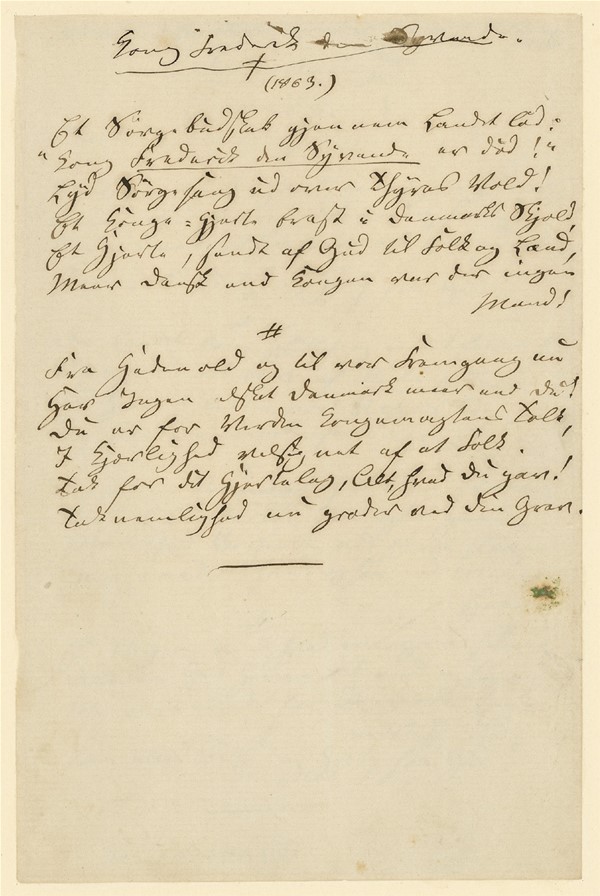 Kong Frederik den Syvende.
†
(1863.)
Et Sørgebudskab gjennem Landet lød:
"Kong Frederik den Syvende er død!"
Lyd Sørgesang ud over Thyras Vold!
Et Konge-Hjerte brast i Danmarks Skjold,
Et Hjerte, sendt af Gud til Folk og Land,
Meer dansk end Kongen var der ingen
Mand!
#
Fra Hedenold og til vor Fremgang nu
Har Ingen elsket Danmark meer end Du!
Du er for Verden Kongemagtens Tolk,
I Kjærlighed velsignet af et Folk.
Tak for dit Hjertelag, Alt, hvad Du gav!
Taknemlighed nu græder ved din Grav.